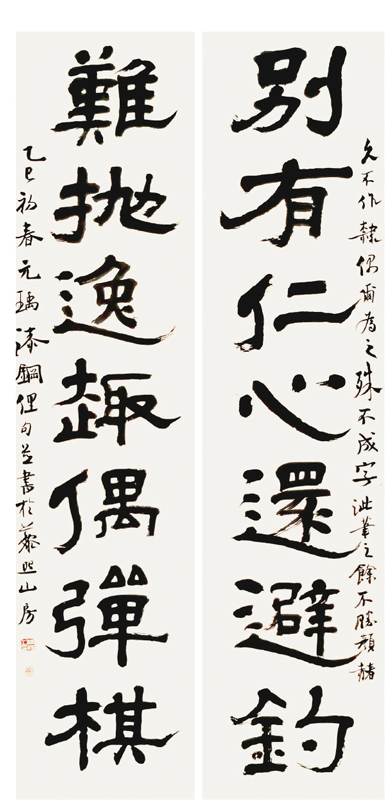 久不作隸偶爾為之殊不成字泚筆之餘不勝顏赭
別有仁心還避釣
難拋逸趣偶彈棋
乙巳初春元瑀漆鋼俚句並書於藜照山房